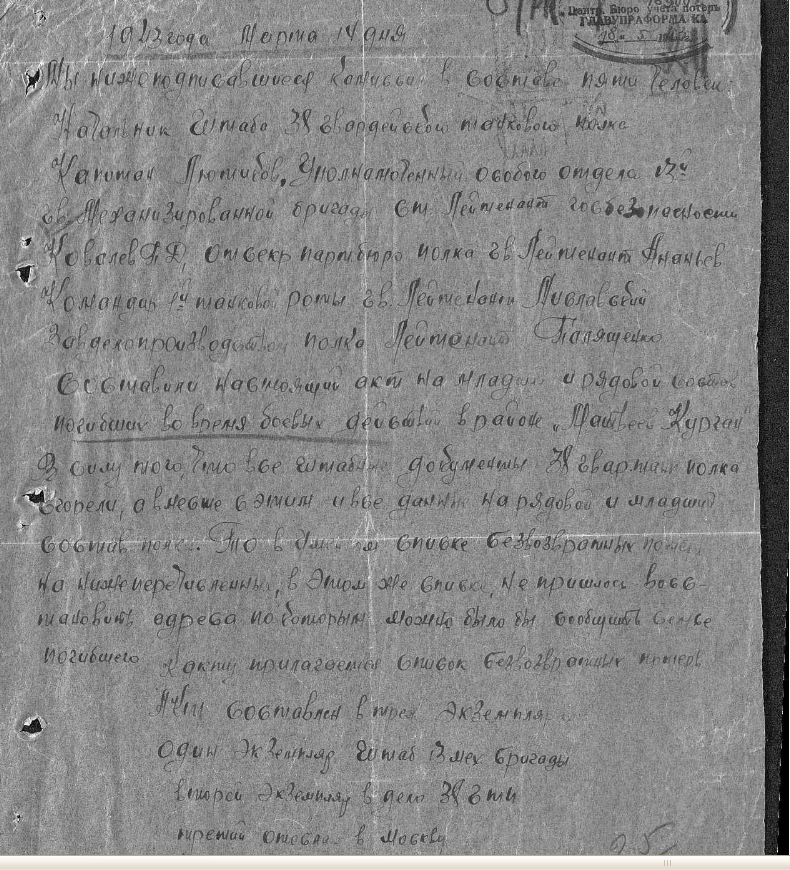 Центр. Бюро учета потерь
ГЛАВУПРАФОРМА КА
1943 года Марта 14 дня
Мы нижеподписавшиеся комиссия в составе пяти человек
Начальник штаба 38 гвардейского танкового полка
Капитан Лютиков, Уполномоченный особого отдела 13й
гв. Механизированной бригады ст. Лейтенант госбезопасности
Ковалев Отсекр партбюро полка гв. Лейтенант Ананьев
Командир 1й танковой роты гв. Лейтенант
Завделопроизводством полка Лейтенант Палященко
составили настоящий акт на младший и рядовой состав
погибших во время боевых действий в районе „Матвеев Курган"
В силу того, что все штабные документы 38 гвартанк полка
сгорели, а вместе с этим и все данные на рядовой и младший
состав полка. То в списке безвозвратных потерь
на нижеперечисленных, в этом же списке, не пришлось восс-
тановить адреса по которым можно было бы сообщить семье
погибшего К акту прилагается список безвозвратных потерь
Акт составлен в трех экземплярах
один экземпляр штаб 13 мех бригады
второй экземпляр в дело 38 гтп
третий отослан в Москву
25